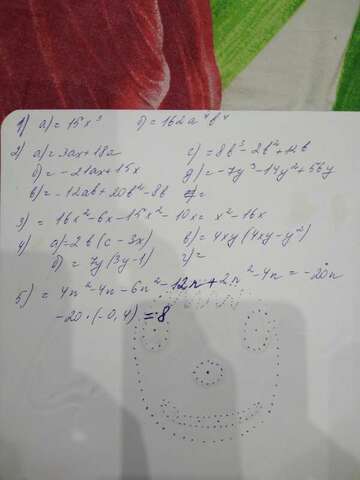 1) а) = 15x³ б) = 162a⁴b⁴
2) а) = 3ax + 18a г) = 8b³ - 2b² + 12b
б) = -21ax + 15x д) = -7y³ - 14y² + 56y
в) = -12ab + 20b² - 8b е) =
3) = 16x² - 6x - 15x² - 10x = x² - 16x
4) а) = 2b(c - 3x) в) = 4xy(4xy - y²)
б) = 7y(3y - 1) г) =
5) = 4n² - 4n - 6n² - 12n + 2n² - 4n = -20n
-20·(-0,4) = 8